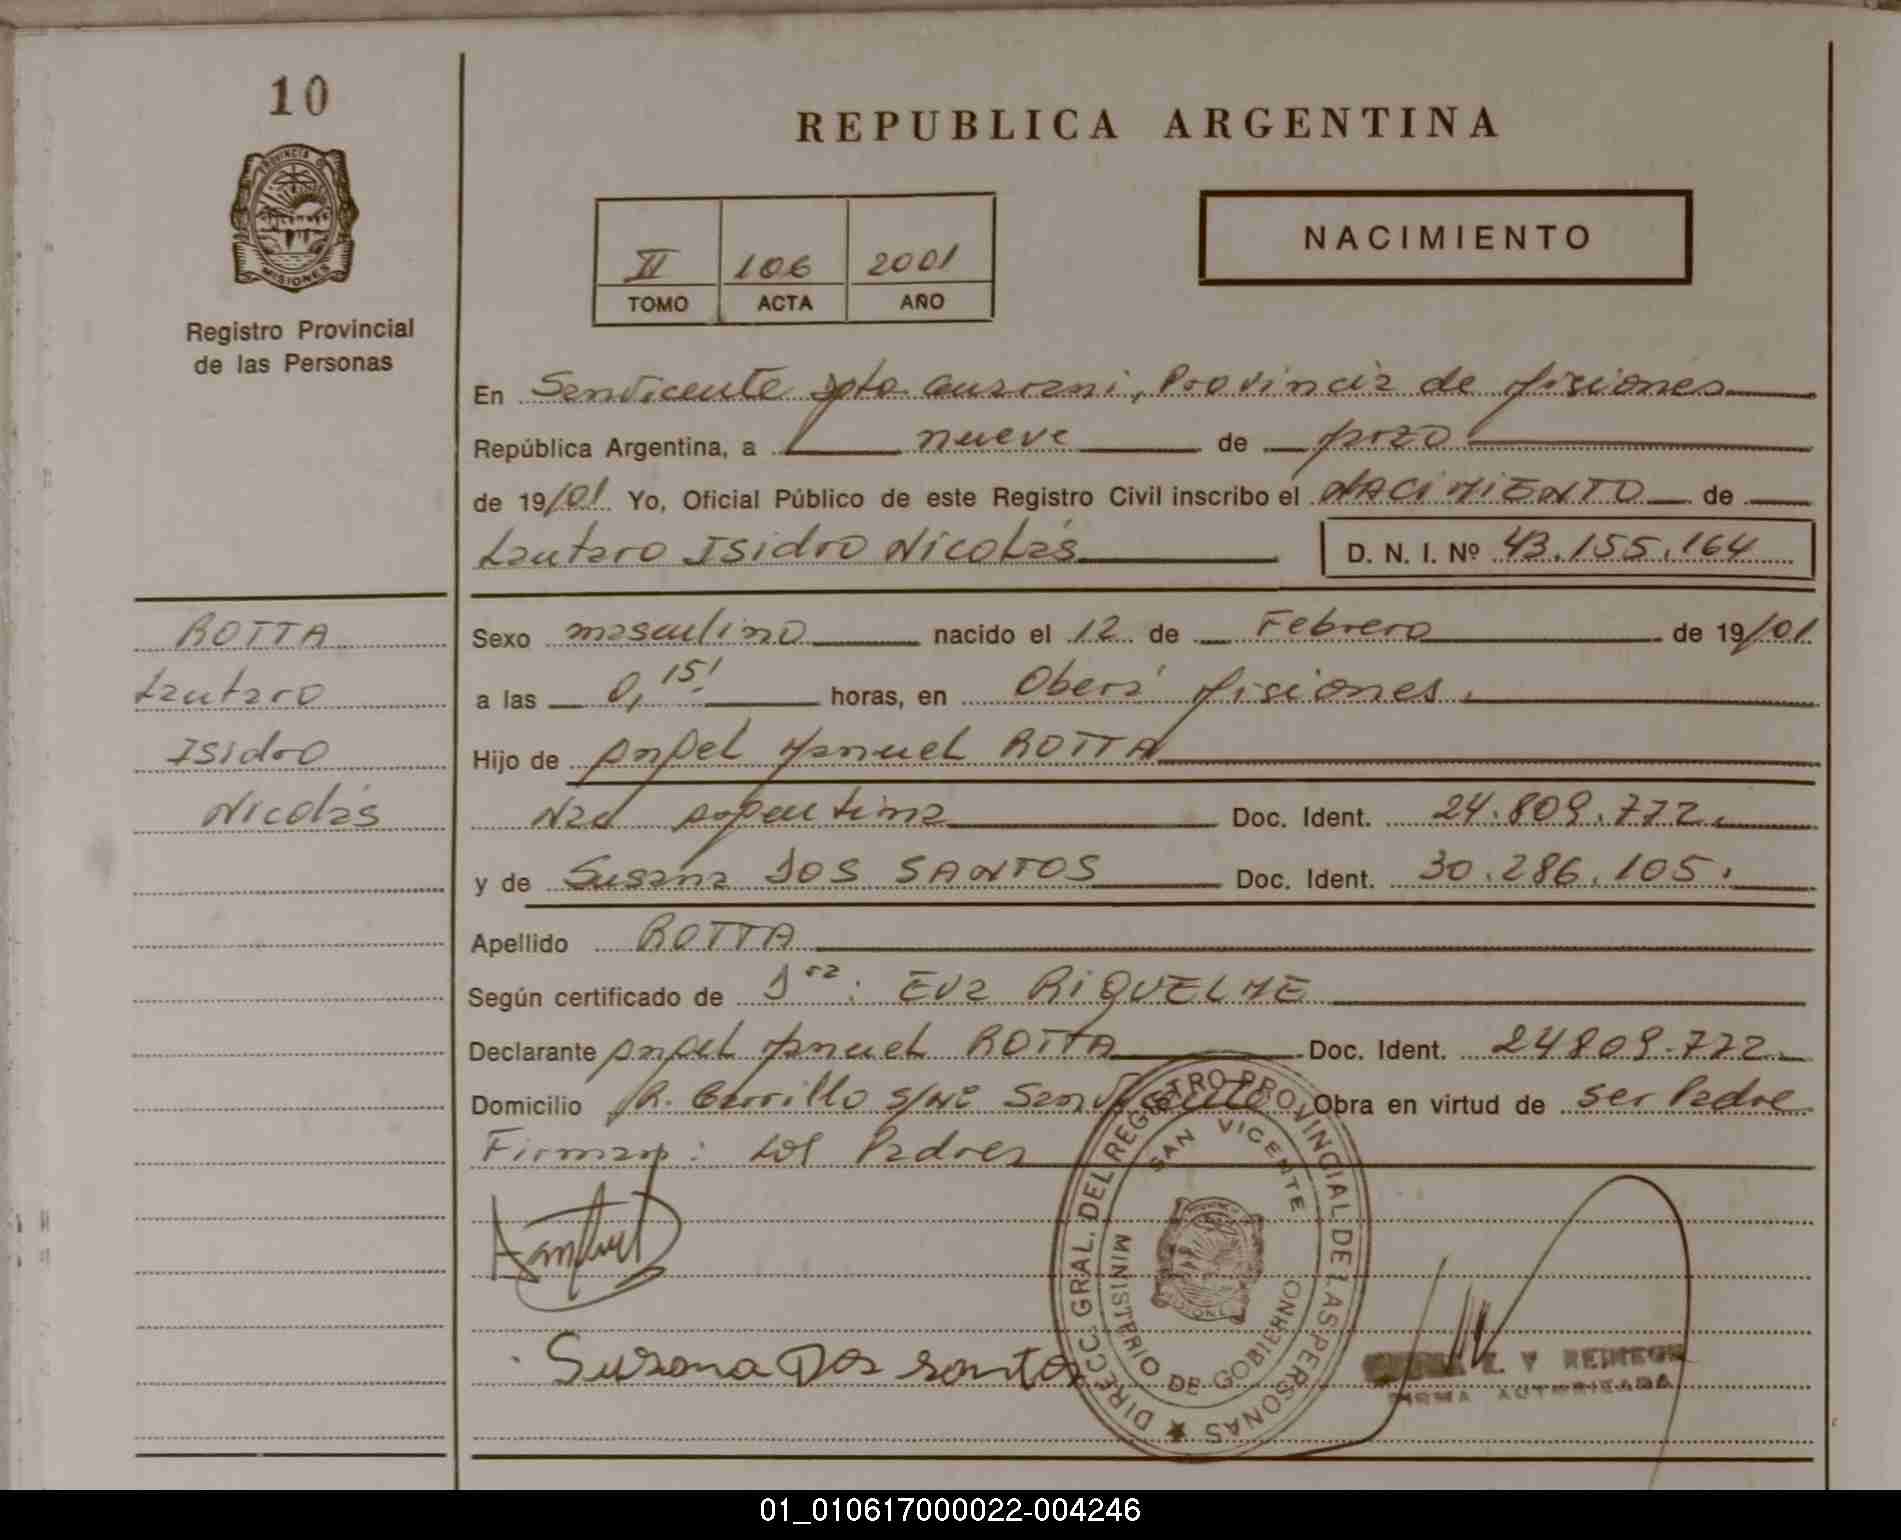 10
PROVINCIA DE
MISIONES
Registro Provincial
de las Personas
REPUBLICA ARGENTINA
II 106 2001
TOMO ACTA AÑO
NACIMIENTO
En San Vicente Dpto Guarani, Provincia de Misiones
República Argentina, a nueve de
de 19/01 Yo, Oficial Público de este Registro Civil inscribo el NACIMIENTO de
Lautaro Isidro Nicolás D. N. I. Nº 43.155.164
ROTTA
Lautaro
Isidro
Nicolás
Sexo masculino nacido el 12 de Febrero de 19/01
a las 0,15' horas, en Oberá Misiones.
Hijo de Angel Manuel ROTTA
Nac argentina Doc. Ident. 24.809.772.
y de Susana DOS SANTOS Doc. Ident. 30.286.105.
Apellido ROTTA
Según certificado de Dra: Eva RIQUELME
Declarante Angel Manuel ROTTA Doc. Ident. 24809.772.
Domicilio R. Carrillo s/nº San Vicente Obra en virtud de ser Padre
Firman: Los Padres
Susana Dos santos
DIRECC. GRAL. DEL REGISTRO PROVINCIAL DE LAS PERSONAS
SAN VICENTE
MINISTERIO DE GOBIERNO
FIRMA AUTORIZADA
01_010617000022-004246